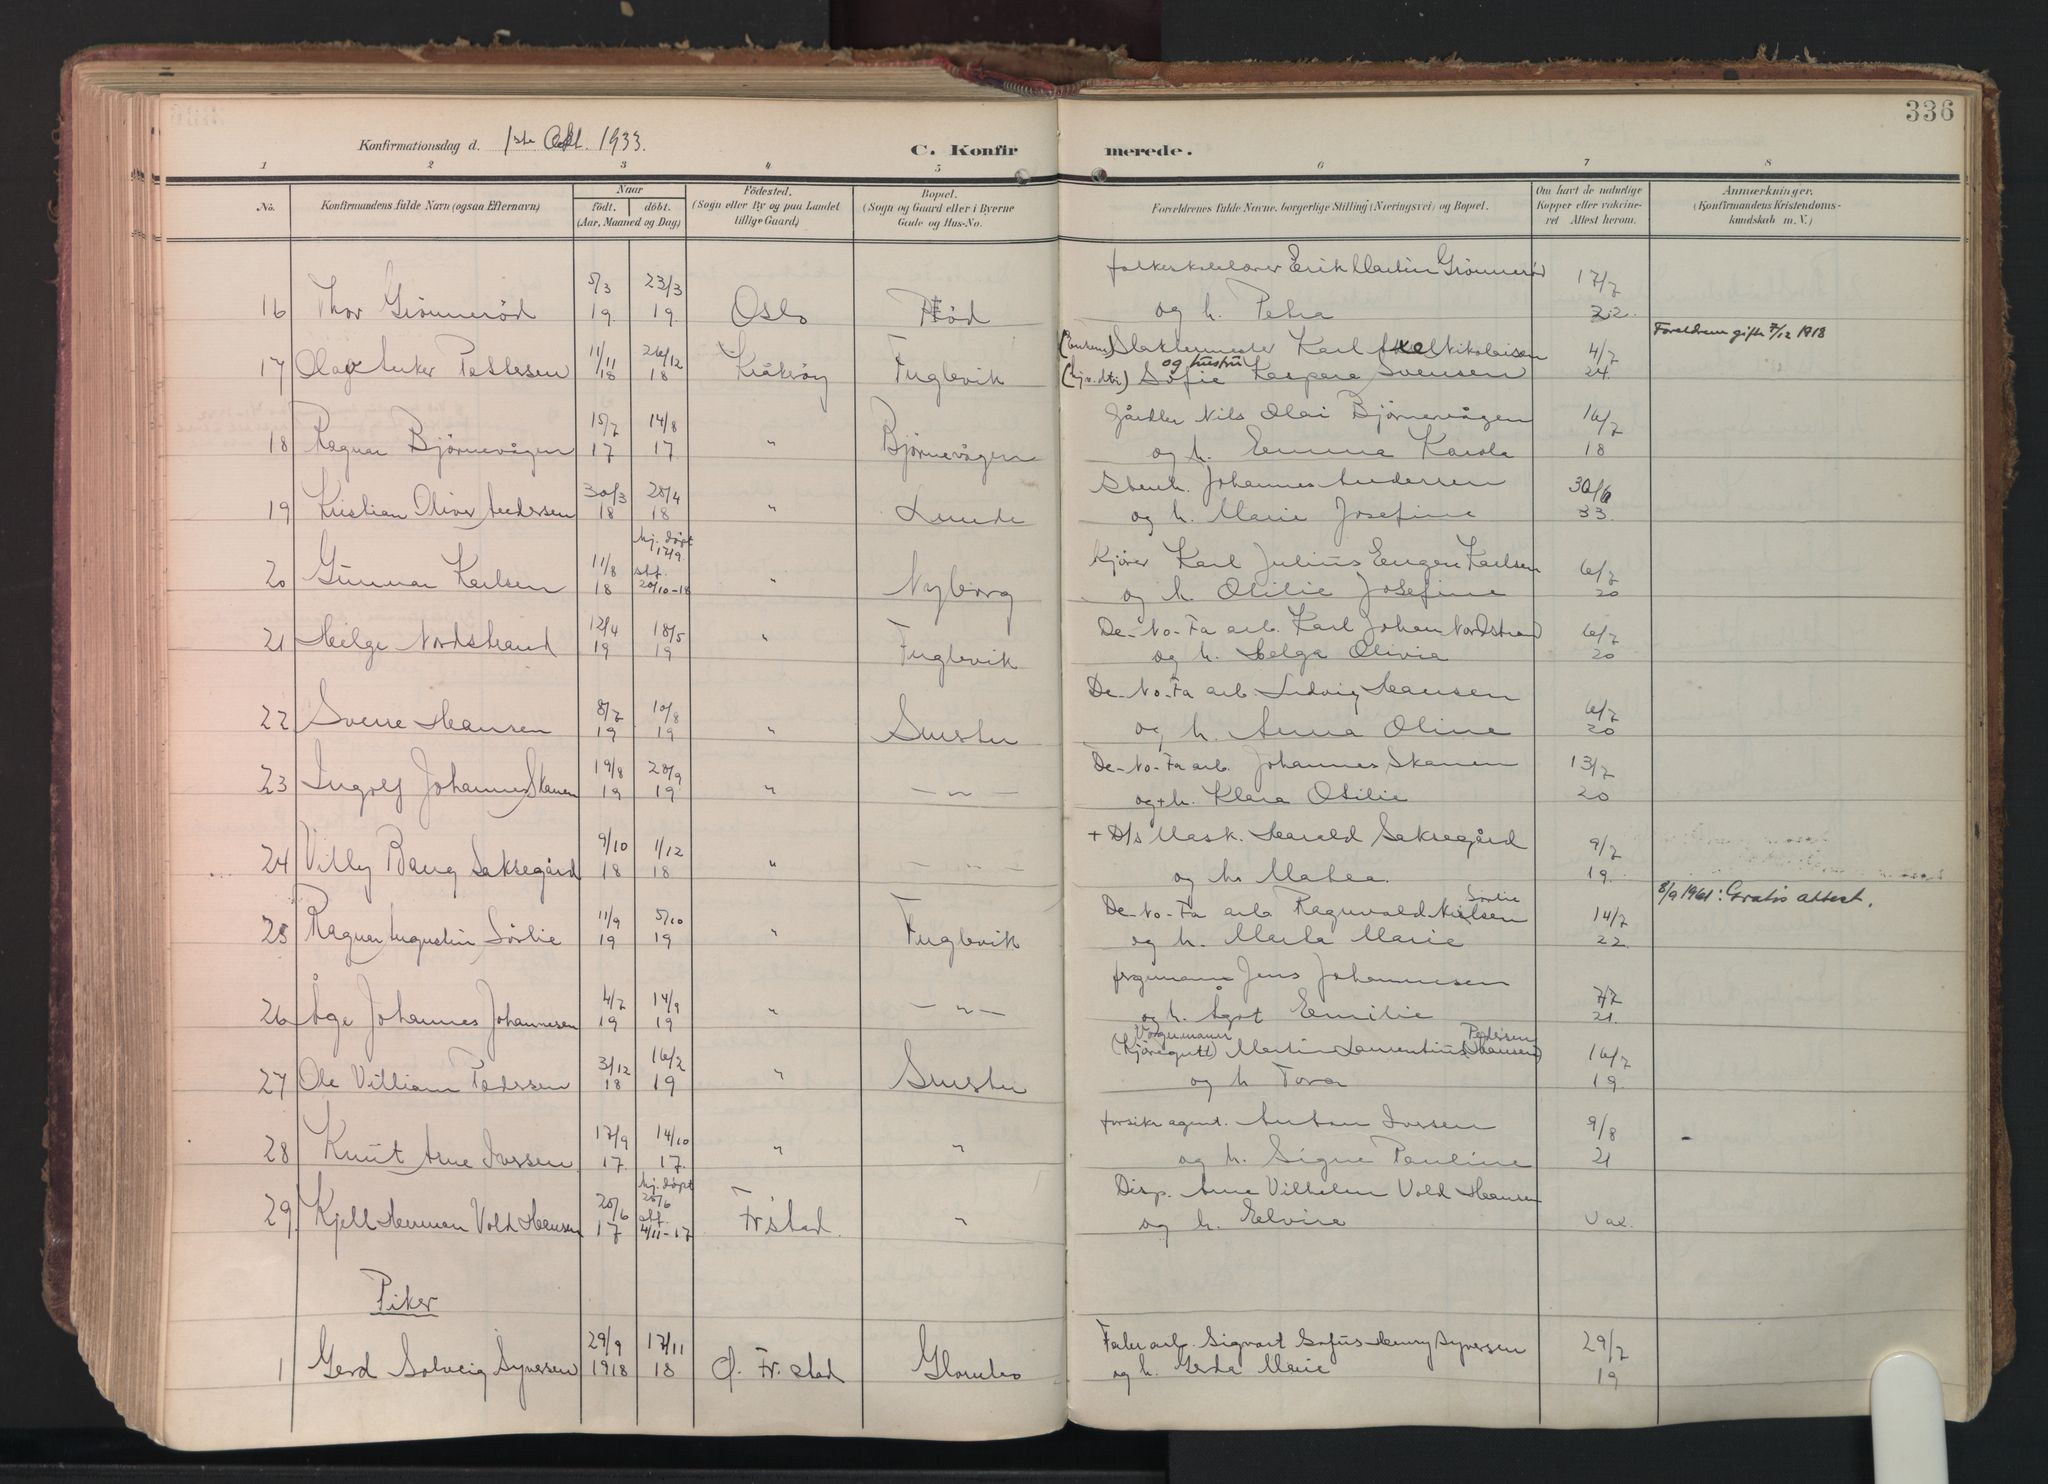 336
Konfirmationsdag d. 1ste Okt. 1933.
C. Konfirmerede.
1 2 3 4 5 6 7 8
No.
Konfirmandens fulde Navn (ogsaa Efternavn)
Naar
født. døbt.
(Aar, Maaned og Dag)
Fødested.
(Sogn eller By og paa Landet tillige Gaard)
Bopæl.
(Sogn og Gaard eller i Byerne Gade og Hus-No.
Forældrenes fulde Navne, borgerlige Stilling (Næringsvei) og Bopæl.
Om havt de naturlige Kopper eller vakcineret Attest herom.
Anmærkninger.
(Konfirmandens Kristendomskundskab m. V.)
16 Thor Grönneröd 5/3 19 23/3 19. Oslo Röd folkeskolelærer Erik Martin Grönneröd og h. Petra 17/7 22.
17 Olaf Anker Pettersen 11/11 18 26/12 18 Kråkröy Fuglevik Slaktermester Karl Axel Nikolaisen og hustru Sofie Kaspara Svensen 4/7 24. Foreldrene gifte 7/12 1918
18 Ragnar Björnevågen 15/7 17 14/8 17. " Björnevågen Gårdbr Nils Olai Björnevågen og h. Emma Karola 16/7 18
19 Kristian Oliver Andersen 30/3 18 28/4 18 " Lunde Stenh. Johannes Andersen og h. Marie Josefine 30/6 33.
20 Gunnar Karlsen 11/8 18 hj. döpt 12/9 stf. 20/10-18 " Nyborg Kjører Karl Julius Eugen Karlsen og h. Otilie Josefine 6/7 20
21 Helge Nordstrand 12/4 19 18/5 19 " Fuglevik De-No-Fa arb. Karl Johan Nordstrand og h. Helga Olivia 6/7 20
22 Sverre Hansen 8/7 19 10/8 19 " Smertu De-No-Fa arb Ludvig Hansen og h. Anna Oline 6/7 20
23 Ingolf Johannes Skanen 19/8 19 28/9 19 " — " — De-No-Fa arb. Johannes Skanen og + h. Klara Otilie 13/7 20
24 Villy Bang Saksegård 9/10 18 1/12 18 " — " — + D/s Mask. Harald Saksegård og h. Mahea. 9/7 19.
25 Ragnar Augustin Sörlie 11/9 19 5/10 19 " Fuglevik De-No-Fa arb Ragnvald Nielsen Sörlie og h. Marta Marie 14/7 22. 8/9 1961: Gratis attest.
26 Åge Johannes Johannesen 4/7 19 14/9 19 " — " — Jens Johannesen og h. Ågot Emilie 7/7 21.
27 Ole Villiam Pedersen 3/12 18 16/2 19 " Smertu Vognmann (Kjöregutt) Martin Laurentius Pedersen (Hansen) og h Tora 16/7 19.
28 Knut Arne Iversen 17/9 17. 14/10 17. " " forsikr agent. Anton Iversen og h. Signe Pauline 9/8 21 -
29. Kjell Herman Vold Hansen 25/6 17 hj. döpt 25/6 stf. 4/11-17 Fr.stad. " Disp. Arne Vilhelm Vold Hansen og h. Elvira Vax.
Piker
1 Gerd Solveig Syversen 29/9 1918 17/11 18 Ø. Fr.stad Glombo Fabr arb. Sigvart Sofus Henry Syversen og h. Gerda Marie 29/7 19